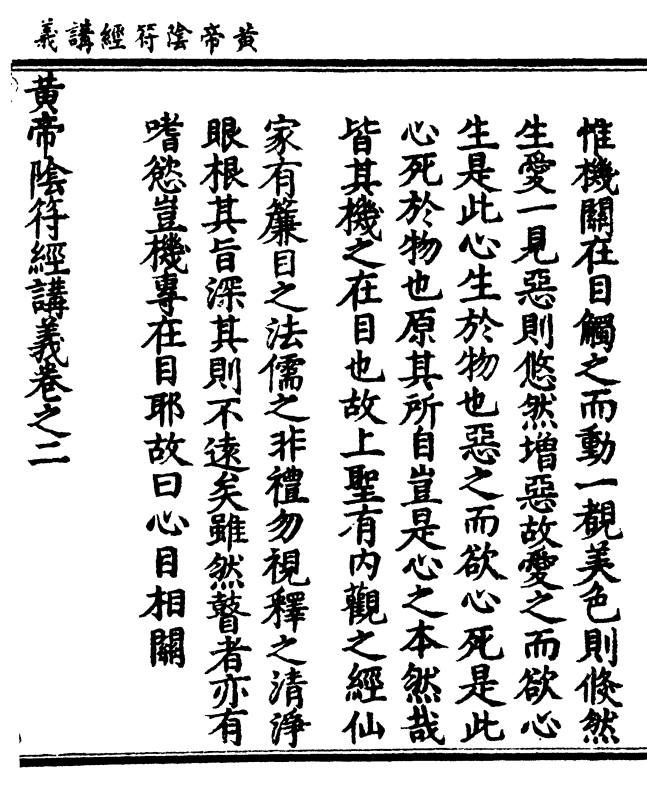 黃帝陰符經講義
惟機關在目觸之而動一覩美色則倐然
生愛一見惡則悠然增惡故愛之而欲心
生是此心生於物也惡之而欲心死是此
心死於物也原其所自豈是心之本然哉
皆其機之在目也故上聖有內觀之經仙
家有簾目之法儒之非禮勿視釋之清淨
眼根其旨深其則不遠矣雖然瞽者亦有
嗜慾豈機專在目耶故曰心目相關
黃帝陰符經講義卷之二